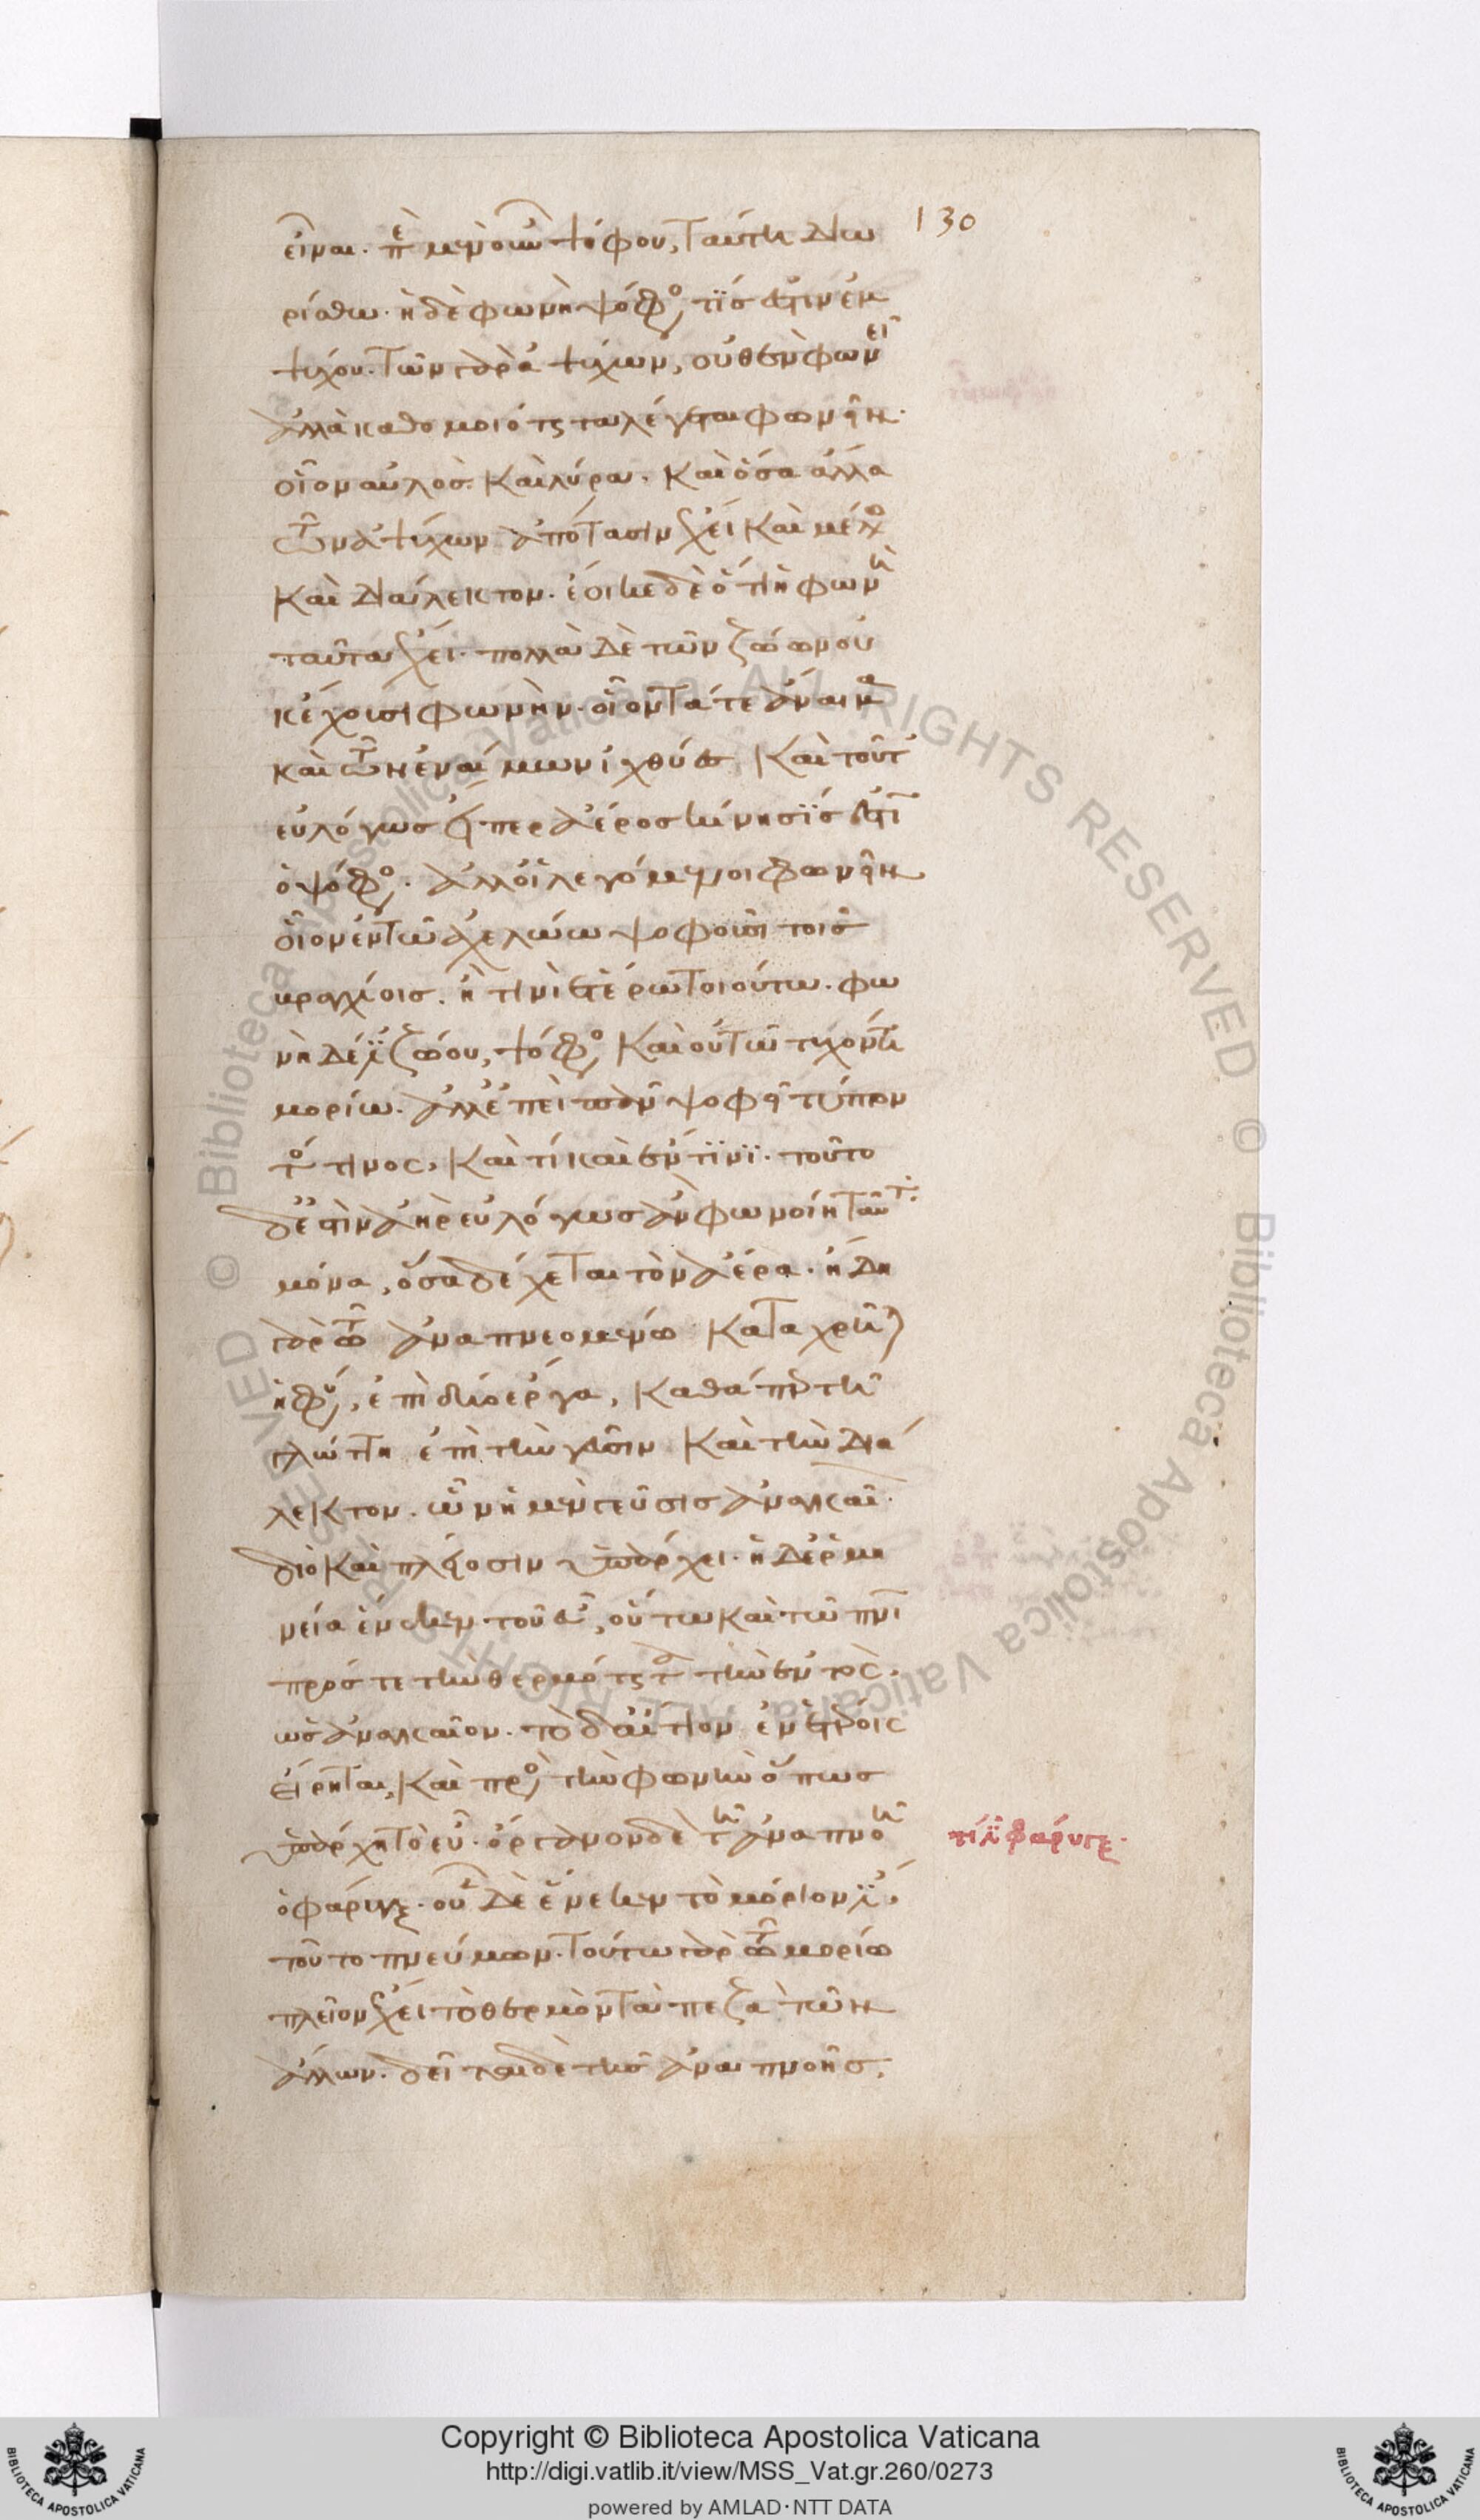 130
εἶναι. περὶ μὲν οὖν ψόφου, ταύτη διω
ρίσθω. ἡ δὲ φωνὴ ψόφος τίς ἐστιν ἐμ
ψύχου. τῶν γὰρ ἀψύχων, οὐθὲν φωνεῖ
ἀλλὰ καθ ὁμοιότητα λέγεται φωνεῖν.
οἷον αὐλὸς. καὶ λύρα. καὶ ὅσα ἄλλα
τῶν ἀψύχων ἀπότασιν ἔχει καὶ μέλος
καὶ διάλεκτον. ἔοικε δὲ ὅτι ἡ φωνὴ
ταῦτα ἔχει. πολλὰ δὲ τῶν ζώων οὐ
κ ἔχουσι φωνὴν. οἷον τά τε ἄναιμα
καὶ τῶν ἐναίμων ἰχθύες καὶ τοῦτ
εὐλόγως εἴπερ ἀέρος κίνησίς ἐστι
ὁ ψόφος. ἀλλ οἱ λεγόμενοι φωνεῖν
οἷον ἐν τῶ ἀχελώω ψοφοῦσι τοῖς
βραγχίοις. ἤ τινι ἑτέρω τοιούτω. φω
νὴ δέ ἐστι ζώου, ψόφος καὶ οὐ τῶ τυχόντι
μορίω. ἀλλ ἐπεὶ πᾶν ψοφεῖ τύπτον
τός τινος, καὶ τί καὶ ἔν τινι. τοῦτο
δ ἐστὶν ἀὴρ εὐλόγως ἂν φωνοίη ταῦτα
μόνα, ὅσα δέχεται τὸν ἀέρα. ἤδη
γὰρ τῶ ἀναπνεομένω καταχρῆται
ἡ φύσις, ἐπὶ δύο ἔργα, καθάπερ τῆ
γλώττη ἐπὶ τὴν γεῦσιν καὶ τὴν διά
λεκτον. ὧν ἡ μὲν γεῦσις ἀναγκαῖον.
διὸ καὶ πλείοσιν ὑπάρχει. ἡ δ ἑρμη
νεία ἕνεκεν τοῦ εὖ, οὕτω καὶ τῶ πνεύματι
πρός τε τὴν θερμότητα τὴν ἐντὸς.
ὡς ἀναγκαῖον. τὸ δ αἴτιον ἐν ἑτέροις
εἴρηται, καὶ πρὸς τὴν φωνὴν ὅπως
ὑπάρχη τὸ εὖ. ὄργανον δὲ τῆ ἀναπνοῆ
τί ἐστι φάρυγξ.
ὁ φάρυγξ. οὗ δὲ ἕνεκεν τὸ μόριόν ἐστι,
τοῦτο πνεύμων. τούτω γὰρ τῶ μορίω
πλεῖον ἔχει τὸ θερμὸν τὰ πεζὰ τῶν
ἄλλων. δεῖται δὲ τῆς ἀναπνοῆς.
Copyright © Biblioteca Apostolica Vaticana
http://digi.vatlib.it/view/MSS_Vat.gr.260/0273
powered by AMLAD·NTT DATA